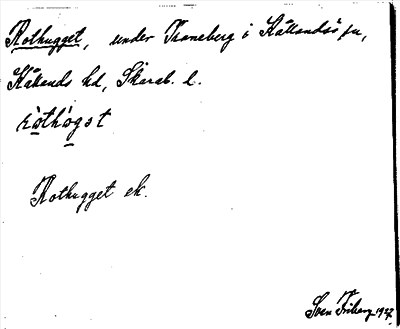 Rothugget, under Traneberg i Kållandsö sn,
Kållands hd, Skarab. l.
ròthògst
Rothugget ek.
Sven Friberg 1927